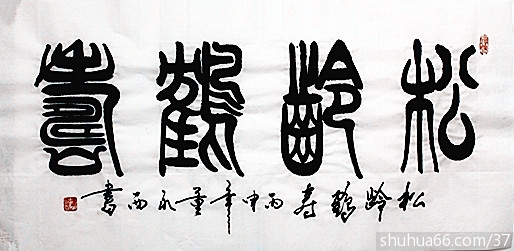 松齡鶴壽
松龄鶴寿丙申年董永西書
shuhua66.com/37